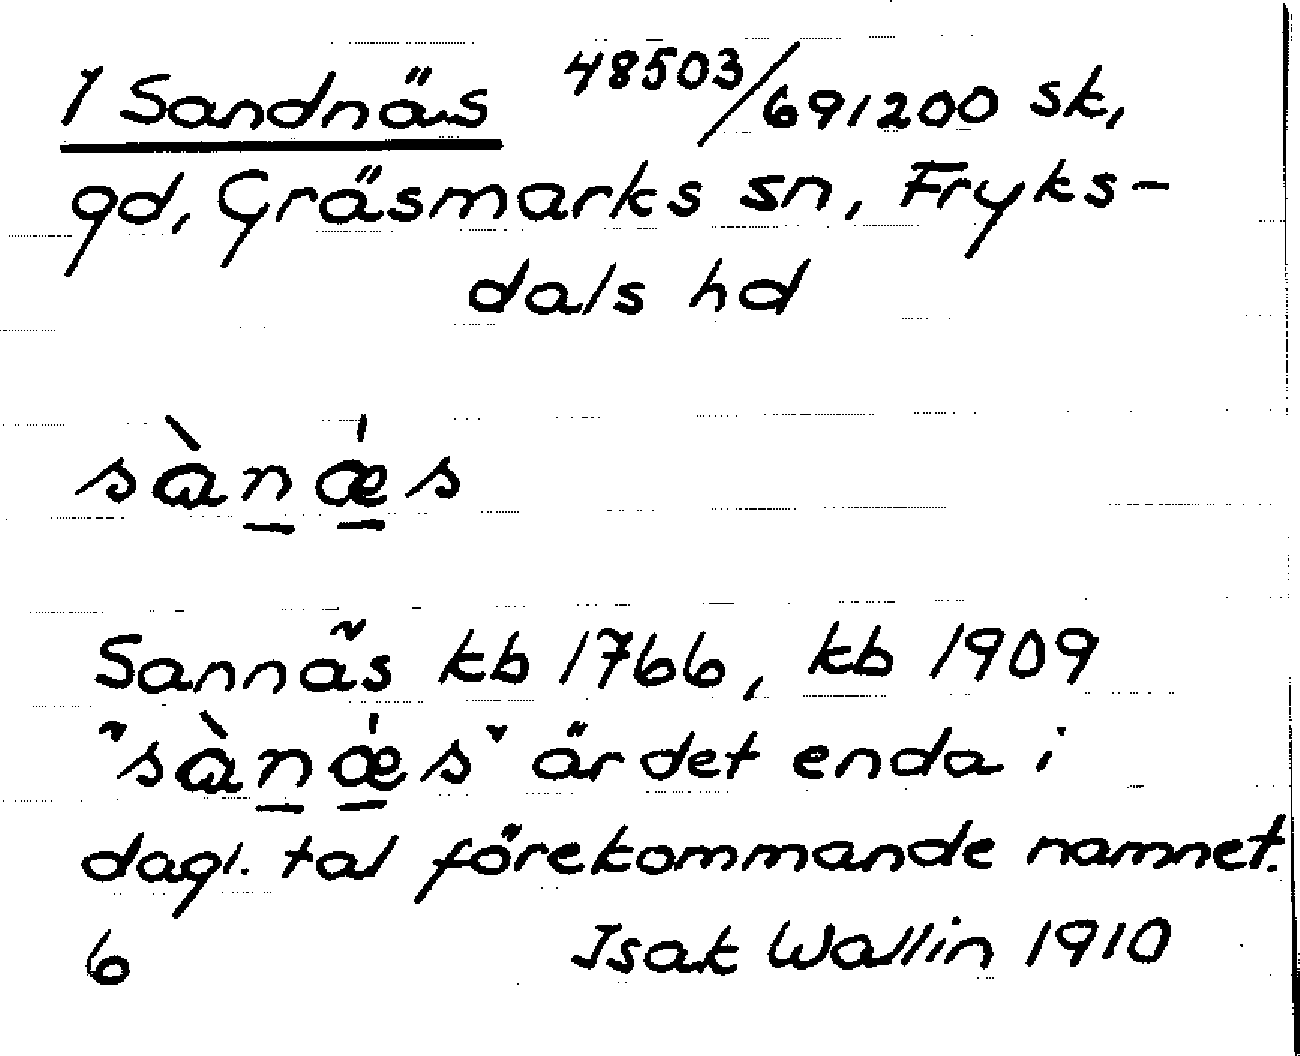 1 Sandnäs 48503/691200 sk,
gd, Gräsmarks sn, Fryks-
dals hd
sàn̲ǽ̲s
Sannäs kb 1766, kb 1909
"sàn̲ǽ̲s" är det enda i
dagl. tal förekommande namnet.
6 Isak Wallin 1910